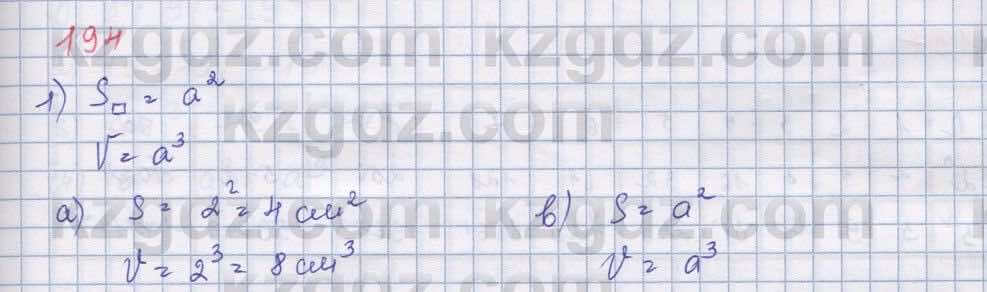 194
1) S□ = a²
V = a³
а) S = 2² = 4 см²
V = 2³ = 8 см³
в) S = a²
V = a³
kzgdz.com kzgdz.com
kzgdz.com
kzgdz.com kzgdz.com